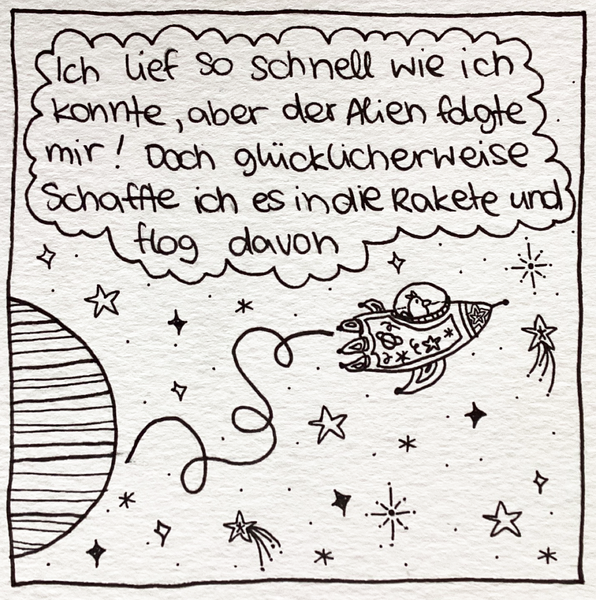 Ich lief so schnell wie ich
konnte, aber der Alien folgte
mir! Doch glücklicherweise
Schaffte ich es in die Rakete und
flog davon